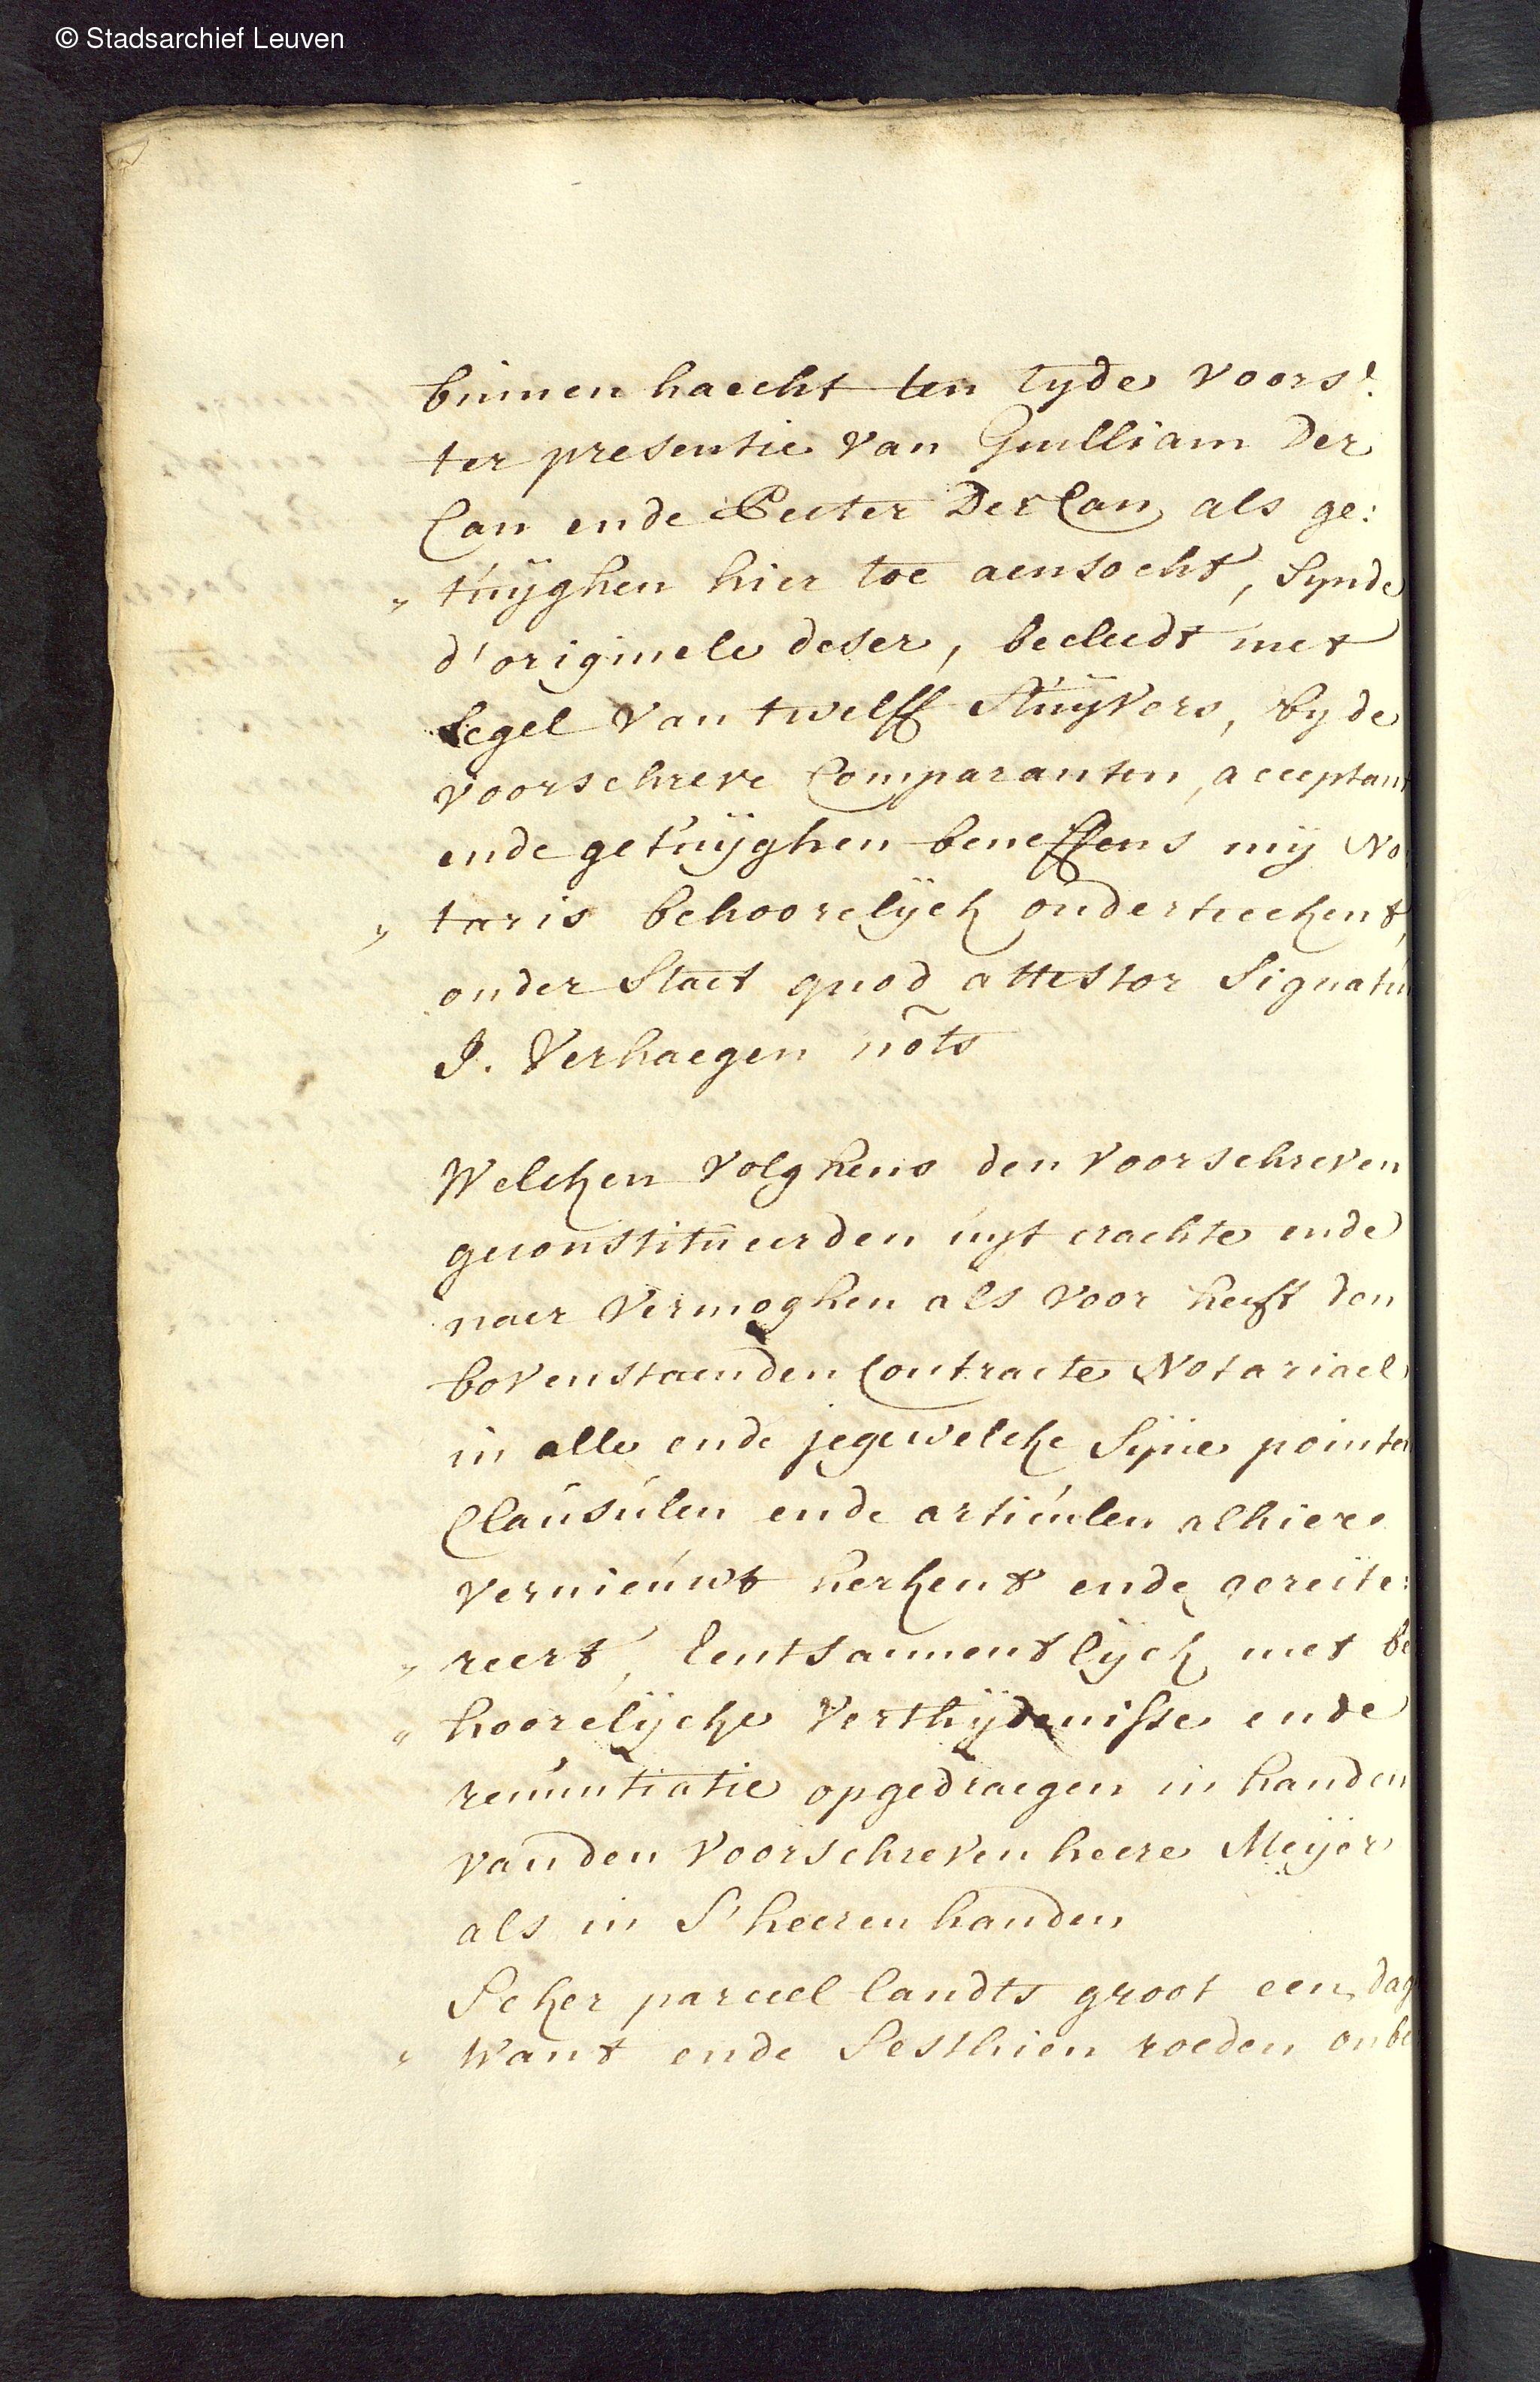 © Stadsarchief Leuven
binnen haecht ten tyde voors:
ter presentie van Guilliam Der
Can ende Peeter Der Can, als ge:
„ tuijghen hier toe aensocht, synde
d'originele deser, becleedt met
segel van twelff stuijvers, by de
voorschreve Comparanten, acceptant
ende getuijghen beneffens mij No
„ taris behoorelijck onderteeckent,
onder staet quod attestor signatur
J. Verhaegen nots
Welcken volghens den voorschreven
geconstitueerden uijt crachte ende
naer vermoghen als voor heeft den
bovenstaenden Contracte Notariael
in alle ende jegewelcke syne pointen
Clausulen ende articulen alhier
vernieuwt herkent ende gereite:
„ reert, Centsamentlijck met be
„ hoorelijcke verthijdenisse ende
renuntiatie opgedraegen in handen
van den voorschreven heere Meijer
als in S'heeren handen
Seker parceel landts groot een dag
„ want ende sesthien roeden onbe